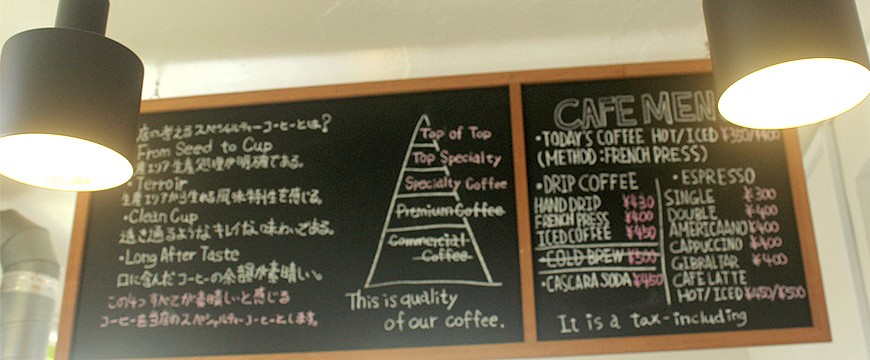 店の考えるスペシャルティーコーヒーとは?
From Seed to Cup
生産エリア生産処理が明確である。
・Terroir
生産エリアから生まれる風味特性を感じる。
・Clean Cup
透き通るようなキレイな味わいである。
・Long After Taste
口に含んだコーヒーの余韻が素晴しい。
この4つすべてが素晴しいと感じる
コーヒーを当店のスペシャルティーコーヒーとします。
Top of Top
Top Specialty
Specialty Coffee
Premium Coffee
Commercial
Coffee
This is quality
of our coffee.
CAFE MEN
・TODAY'S COFFEE HOT/ICED ¥350/¥400
(METHOD:FRENCH PRESS)
・DRIP COFFEE
HAND DRIP ¥430
FRENCH PRESS ¥400
ICED COFFEE ¥450
・COLD BREW ¥500
・CASCARA SODA ¥450
・ESPRESSO
SINGLE ¥300
DOUBLE ¥400
AMERICAANO ¥400
CAPPUCCINO ¥400
GIBRALTAR ¥400
CAFE LATTE
HOT/ICED ¥450/¥500
It is a tax-including